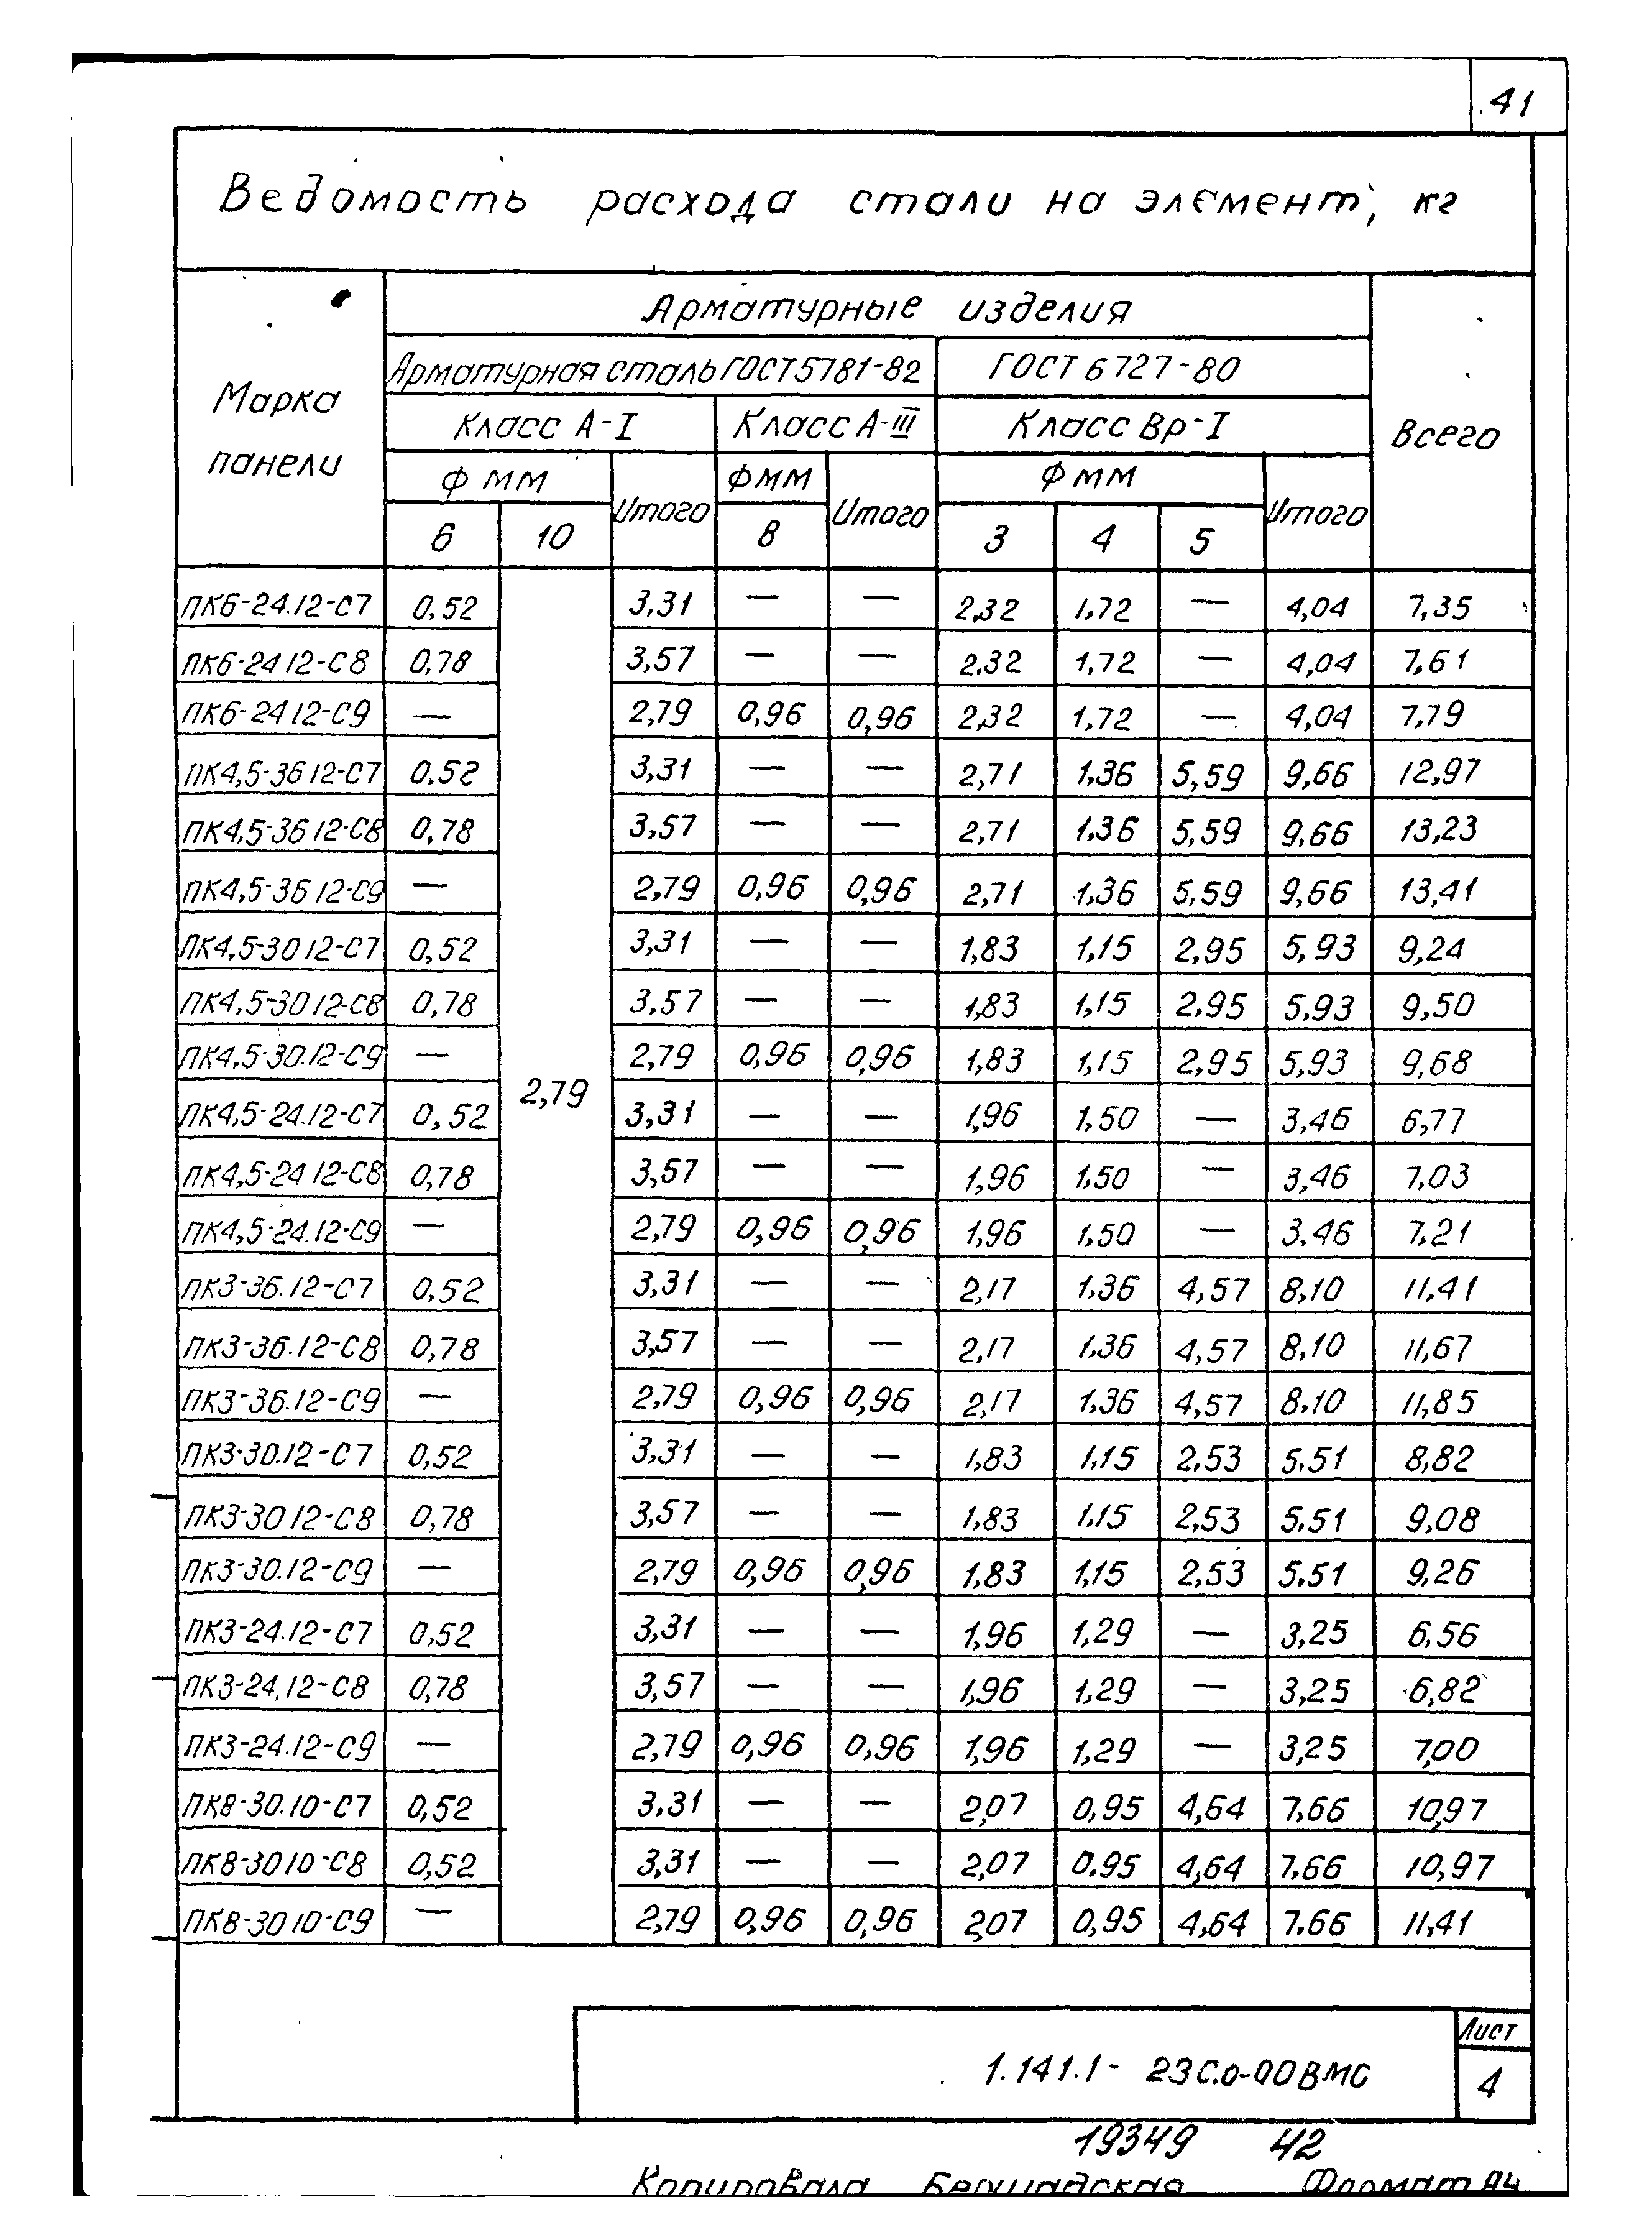 41
Ведомость расхода стали на элемент, кг
Марка панели
Арматурные изделия
Всего
Арматурная сталь ГОСТ 5781-82 ГОСТ 6727-80
Класс А-I Класс А-III Класс Вр-I
Ф мм Итого Ф мм Итого Ф мм Итого
6 10 8 3 4 5
ПК6-24.12-С7 0,52 3,31 — — 2,32 1,72 — 4,04 7,35
ПК6-24 12-С8 0,78 3,57 — — 2.32 1,72 — 4,04 7,61
ПК6-24 12-С9 — 2,79 0,96 0,96 2,32 1,72 — 4,04 7,79
ПК4,5-36 12-С7 0,52 3,31 — — 2,71 1,36 5,59 9,66 12,97
ПК4,5-36 12-С8 0,78 3,57 — — 2,71 1,36 5,59 9,66 13,23
ПК4,5-36 12-С9 — 2,79 0,96 0,96 2,71 1,36 5,59 9,66 13,41
ПК4,5-30 12-С7 0,52 3,31 — — 1,83 1,15 2,95 5,93 9,24
ПК4,5-30 12-С8 0,78 3,57 — — 1,83 1,15 2,95 5,93 9,50
ПК4,5-30.12-С9 — 2,79 0,96 0,96 1,83 1,15 2,95 5,93 9,68
2,79
ПК4,5-24.12-С7 0,52 3,31 — — 1,96 1,50 — 3,46 6,77
ПК4,5-24 12-С8 0,78 3,57 — — 1,96 1,50 — 3,46 7,03
ПК4,5-24.12-С9 — 2,79 0,96 0,96 1,96 1,50 — 3.46 7,21
ПК3-36.12-С7 0,52 3,31 — — 2,17 1,36 4,57 8,10 11,41
ПК3-36.12-С8 0,78 3,57 — — 2,17 1,36 4,57 8,10 11,67
ПК3-36.12-С9 — 2,79 0,96 0,96 2,17 1,36 4,57 8,10 11,85
ПК3-30.12-С7 0,52 3,31 — — 1,83 1,15 2,53 5,51 8,82
ПК3-30 12-С8 0,78 3,57 — — 1,83 1,15 2,53 5,51 9,08
ПК3-30.12-С9 — 2,79 0,96 0,96 1,83 1,15 2,53 5,51 9,26
ПК3-24.12-С7 0,52 3,31 — — 1,96 1,29 — 3,25 6,56
ПК3-24.12-С8 0,78 3,57 — — 1,96 1,29 — 3,25 6,82
ПК3-24.12-С9 — 2,79 0,96 0,96 1,96 1,29 — 3,25 7,00
ПК8-30.10-С7 0,52 3,31 — — 2,07 0,95 4,64 7,66 10,97
ПК8-30 10-С8 0,52 3,31 — — 2,07 0,95 4,64 7,66 10,97
ПК8-30 10-С9 — 2,79 0,96 0,96 2,07 0,95 4,64 7,66 11,41
1.141.1- 23С.0-00ВМС
Лист
4
19349 42
Копировала Бершадская Формат А4